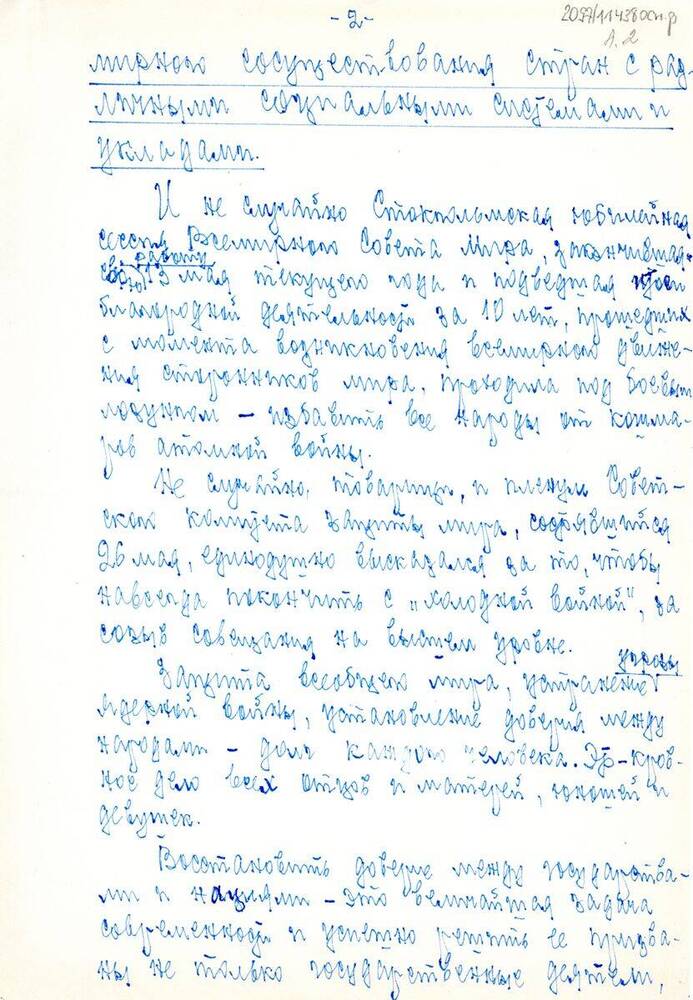 - 2 -
2097/11438 оп.ф
л. 2
мирного сосуществования стран с раз-
личными социальными системами и
укладами.
И не случайно Стокгольмская юбилейная
сессия Всемирного Совета Мира, закончившая
работу
свою 13 мая текущего года и подведшая итоги
благородной деятельности за 10 лет, прошедших
с момента возникновения всемирного движе-
ния сторонников мира, проходила под боевым
лозунгом – избавить все народы от кошма-
ров атомной войны.
Не случайно, товарищи, и пленум Совет-
ского комитета защиты мира, состоявшийся
26 мая, единодушно высказался за то, чтобы
навсегда покончить с „холодной войной", за
созыв совещания на высшем уровне.
угрозы
Защита всеобщего мира, устранение
ядерной войны, установление доверия между
народами – долг каждого человека. Это – кров-
ное дело всех отцов и матерей, юношей и
девушек.
Восстановить доверие между государства-
ми и нациями – это величайшая задача
современности и успешно решить ее призва-
ны не только государственные деятели,